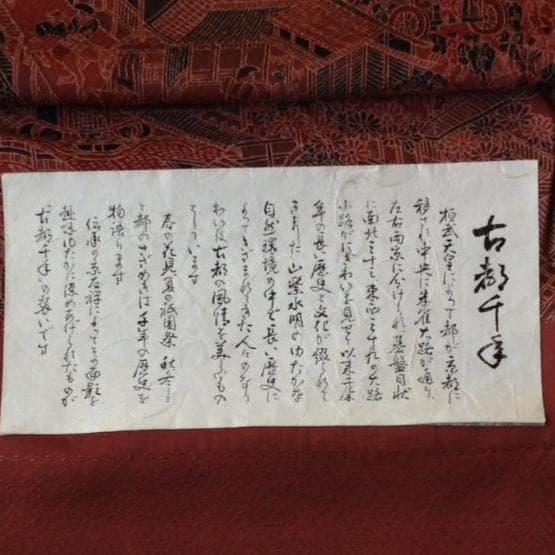 古都千年
桓武天皇によって都が京都に
移され中央に朱雀大路が通り、
左右両京に分けられ碁盤目状
に南北三十三東西三十九の大路
小路がにぎわいを見せて以来千余
年の長い歴史と文化が綴られて
きました 山紫水明のゆたかな
自然環境の中で長い歴史に
よってきざまれてきた人々のなり
わいは古都の風情を美しいもの
にしています
春の花見夏の祇園祭 秋
と都のさざめきは千年の歴史を
物語ります
伝承の京友禅によってその面影を
趣味ゆたかに染めあげられたものが
"古都千年"の装いです